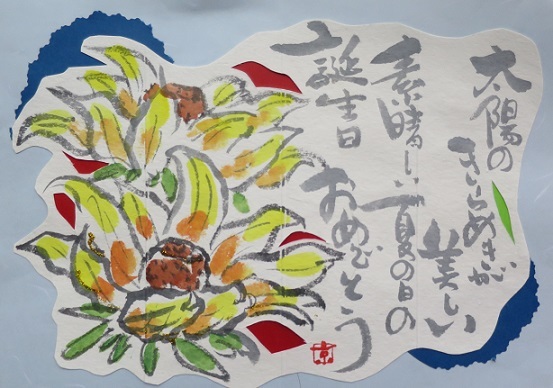 太陽の
きらめきが
美しい
素晴しい夏の日の
誕生日
おめでとう
京